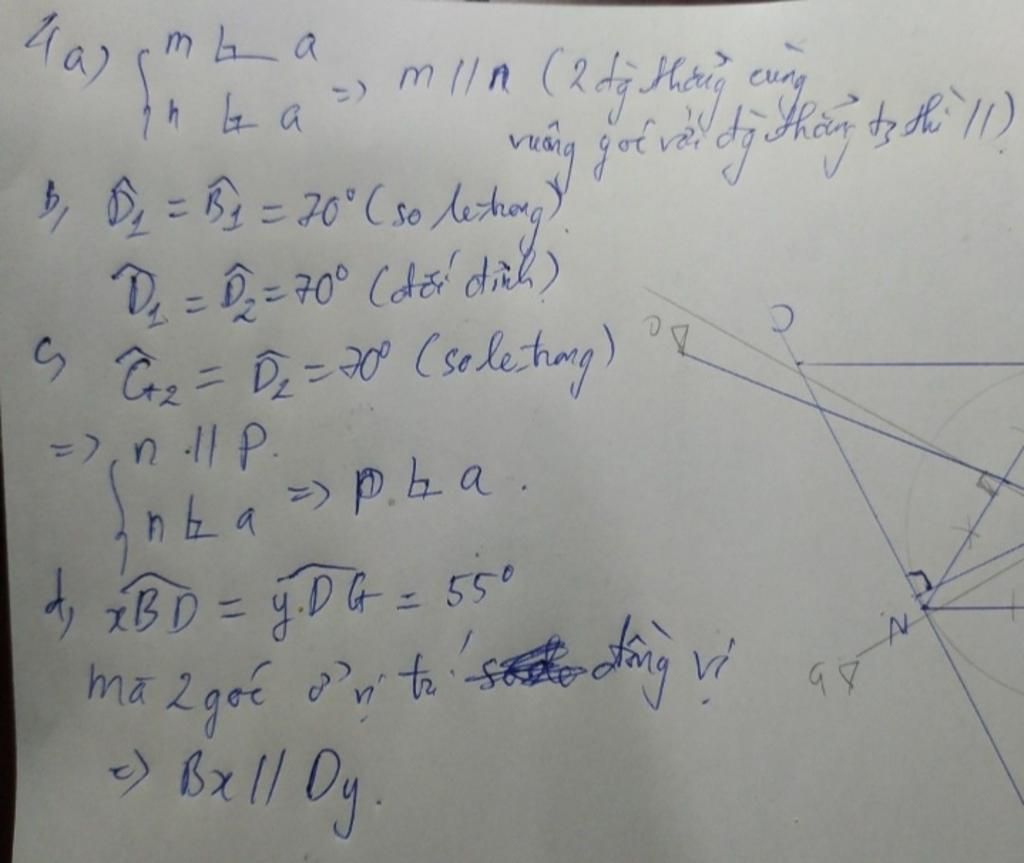 4a) { m ⊥ a
n ⊥ a => m // n (2 đg thẳng cùng
vuông góc với đg thẳng t3 thì //)
b, D̂1 = B̂1 = 70° (so le trong)
D̂1 = D̂2 = 70° (đối đỉnh)
c, Ĝ2 = D̂2 = 70° (so le trong)
=> { n // p.
n ⊥ a => p ⊥ a.
d, xBD = y.DG = 55°
mà 2 góc ở vị trí đồng vị
=> Bx // Dy.
D
N